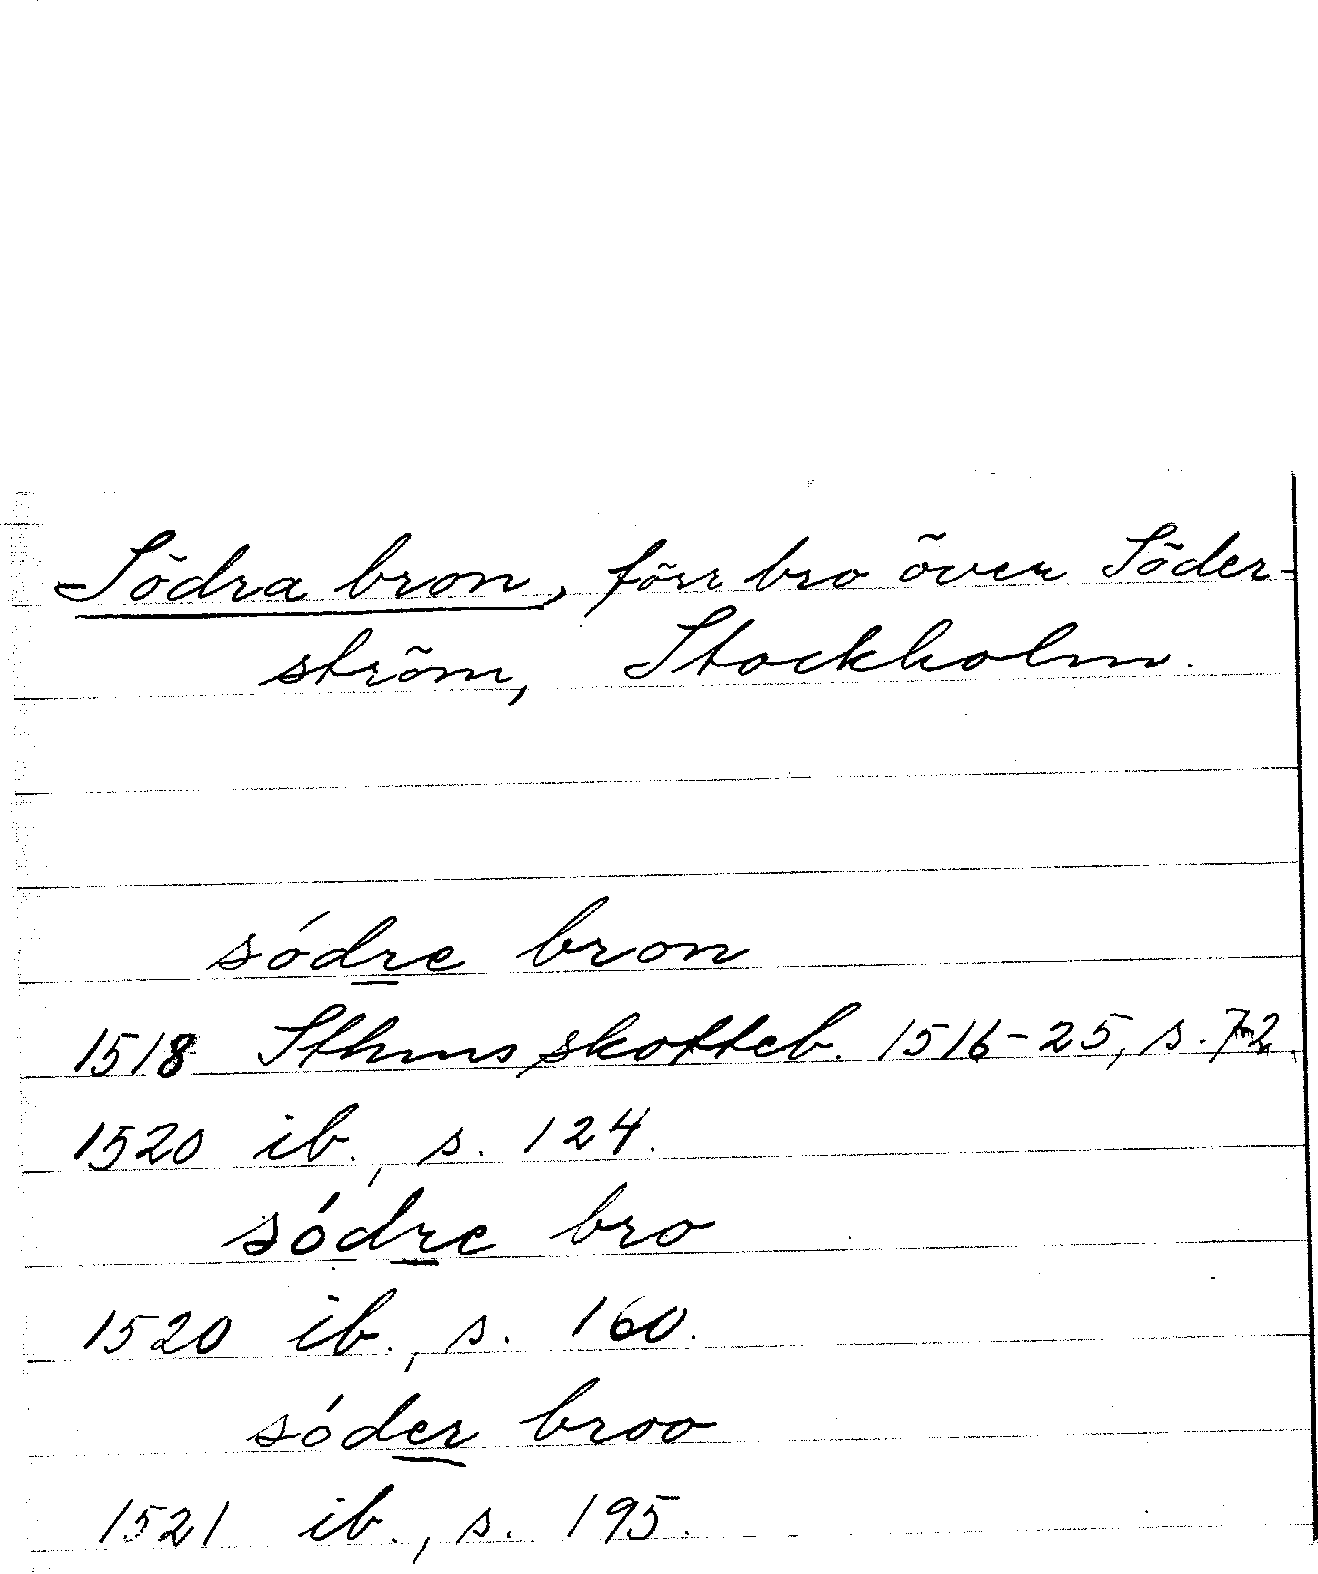 Södra bron, förr bro över Söder-
ström, Stockholm.
sódre bron
1518 Sthms skotteb. 1516-25, s. 72.
1520 ib., s. 124.
sódre bro
1520 ib., s. 160.
sóder broo
1521 ib., s. 195.